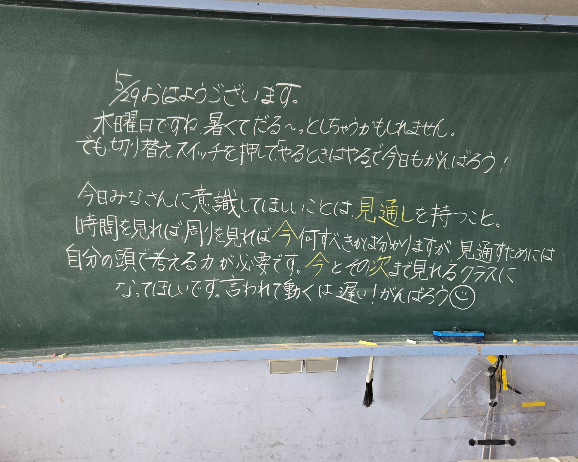 5/29 おはようございます。
木曜日ですね。暑くてだる〜っとしちゃうかもしれません。
でも切り替えスイッチを押してやるときはやるで今日もがんばろう!
今日みなさんに意識してほしいことは、見通しを持つこと。
時間を見れば周りを見れば今何すべきかは分かりますが、見通すためには
自分の頭で考える力が必要です。今とその次まで見れるクラスに
なってほしいです。言われて動くは遅い!がんばろう☺